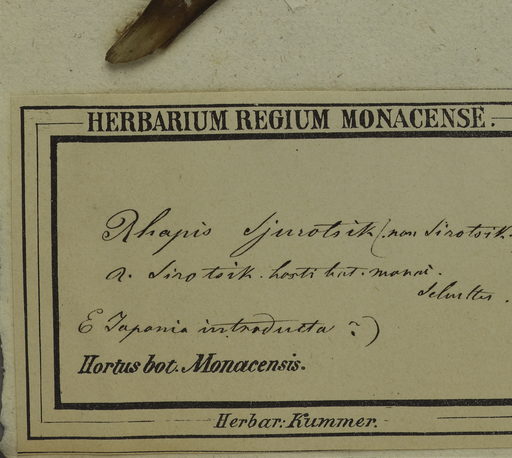 HERBARIUM REGIUM MONACENSE.
Rhapis Sjurotsik (non Sirotsik.
R. Sirotsik. horti bot. monac.
Schultes.
E Japonia introducta?)
Hortus bot. Monacensis.
Herbar: Kummer.